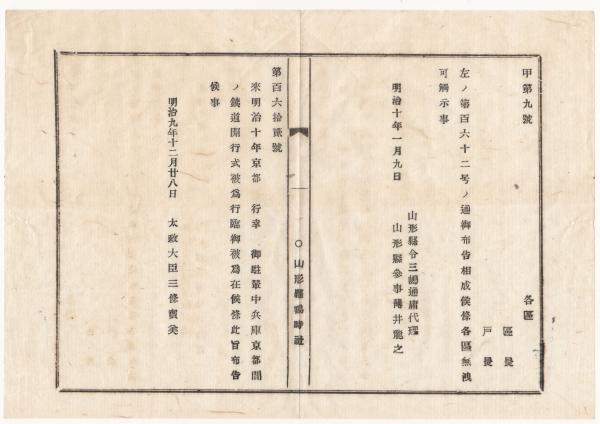 甲第九號
各區
區長
戸長
左ノ第百六十二号ノ通御布告相成候條各區無洩
可觸示事
明治十年一月九日
山形縣令三島通庸代理
山形縣參事薄井龍之
○山形縣鳴時社
第百六拾貳號
來明治十年京都 行幸 御駐輦中兵庫京都間
ノ鐵道開行式被爲行臨御被爲在候條此旨布告
候事
明治九年十二月廿八日 太政大臣三條實美